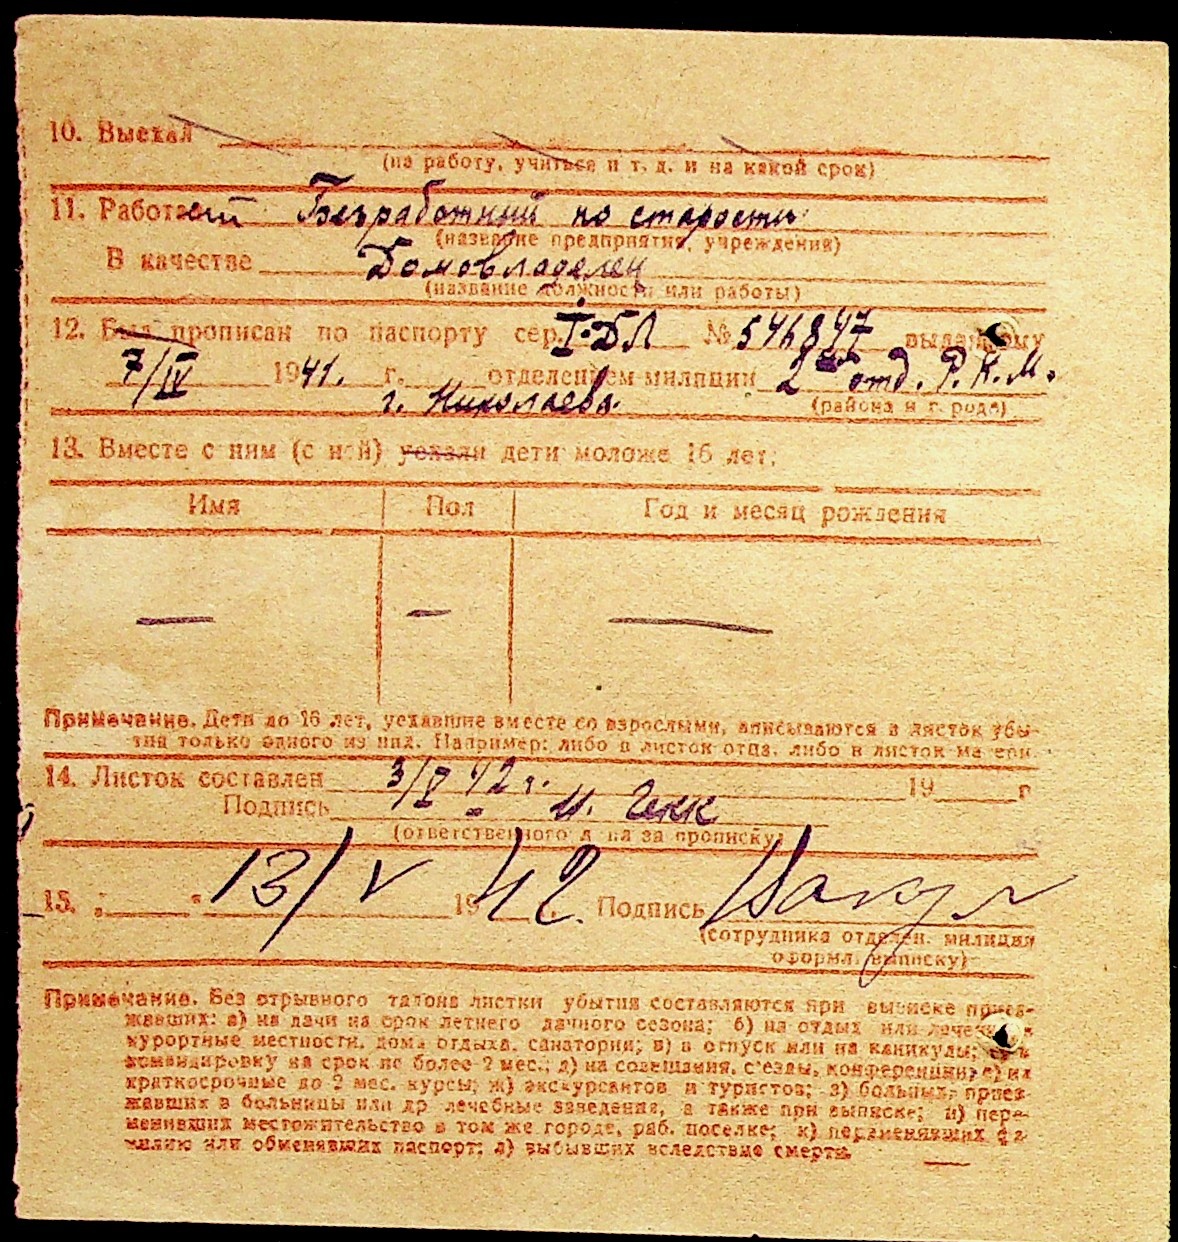 10. Выехал
(на работу, учиться и т. д. и на какой срок)
11. Работ Безработный по старости
(название предприятия, учреждения)
В качестве Домовладелец
(название должности или работы)
12. Был прописан по паспорту сер. I-ДЛ № 546847 выданному
7/IV 1941. г. отделением милиции 2 отд. Р.К.М.
г. Николаева. (района и города)
13. Вместе с ним (с ней) уехали дети моложе 16 лет:
Имя Пол Год и месяц рождения
— — —
Примечание. Дети до 16 лет, уехавшие вместе со взрослыми, вписываются в листок убы-
тия только одного из них. Например: либо в листок отца, либо в листок матери.
14. Листок составлен 3/V 42 г. 19 г
Подпись И. Гекк
(ответственного лица за прописку)
15. „ “ 13/V 1942. Подпись
(сотрудника отделен. милиции
оформл. выписку)
Примечание. Без отрывного талона листки убытия составляются при выписке приез-
жавших: а) на дачи на срок летнего дачного сезона; б) на отдых или лечение в
курортные местности, дома отдыха, санатории; в) в отпуск или на каникулы;
командировку на срок не более 2 мес.; д) на совещания, съезды, конференции; е) на
краткосрочные до 2 мес. курсы; ж) экскурсантов и туристов; з) больных, приез-
жавших в больницы или др лечебные заведения, а также при выписке; и) пере-
менивших местожительство в том же городе, раб. поселке; к) переменявших фа-
милию или обменявших паспорт; л) выбывших вследствие смерти.